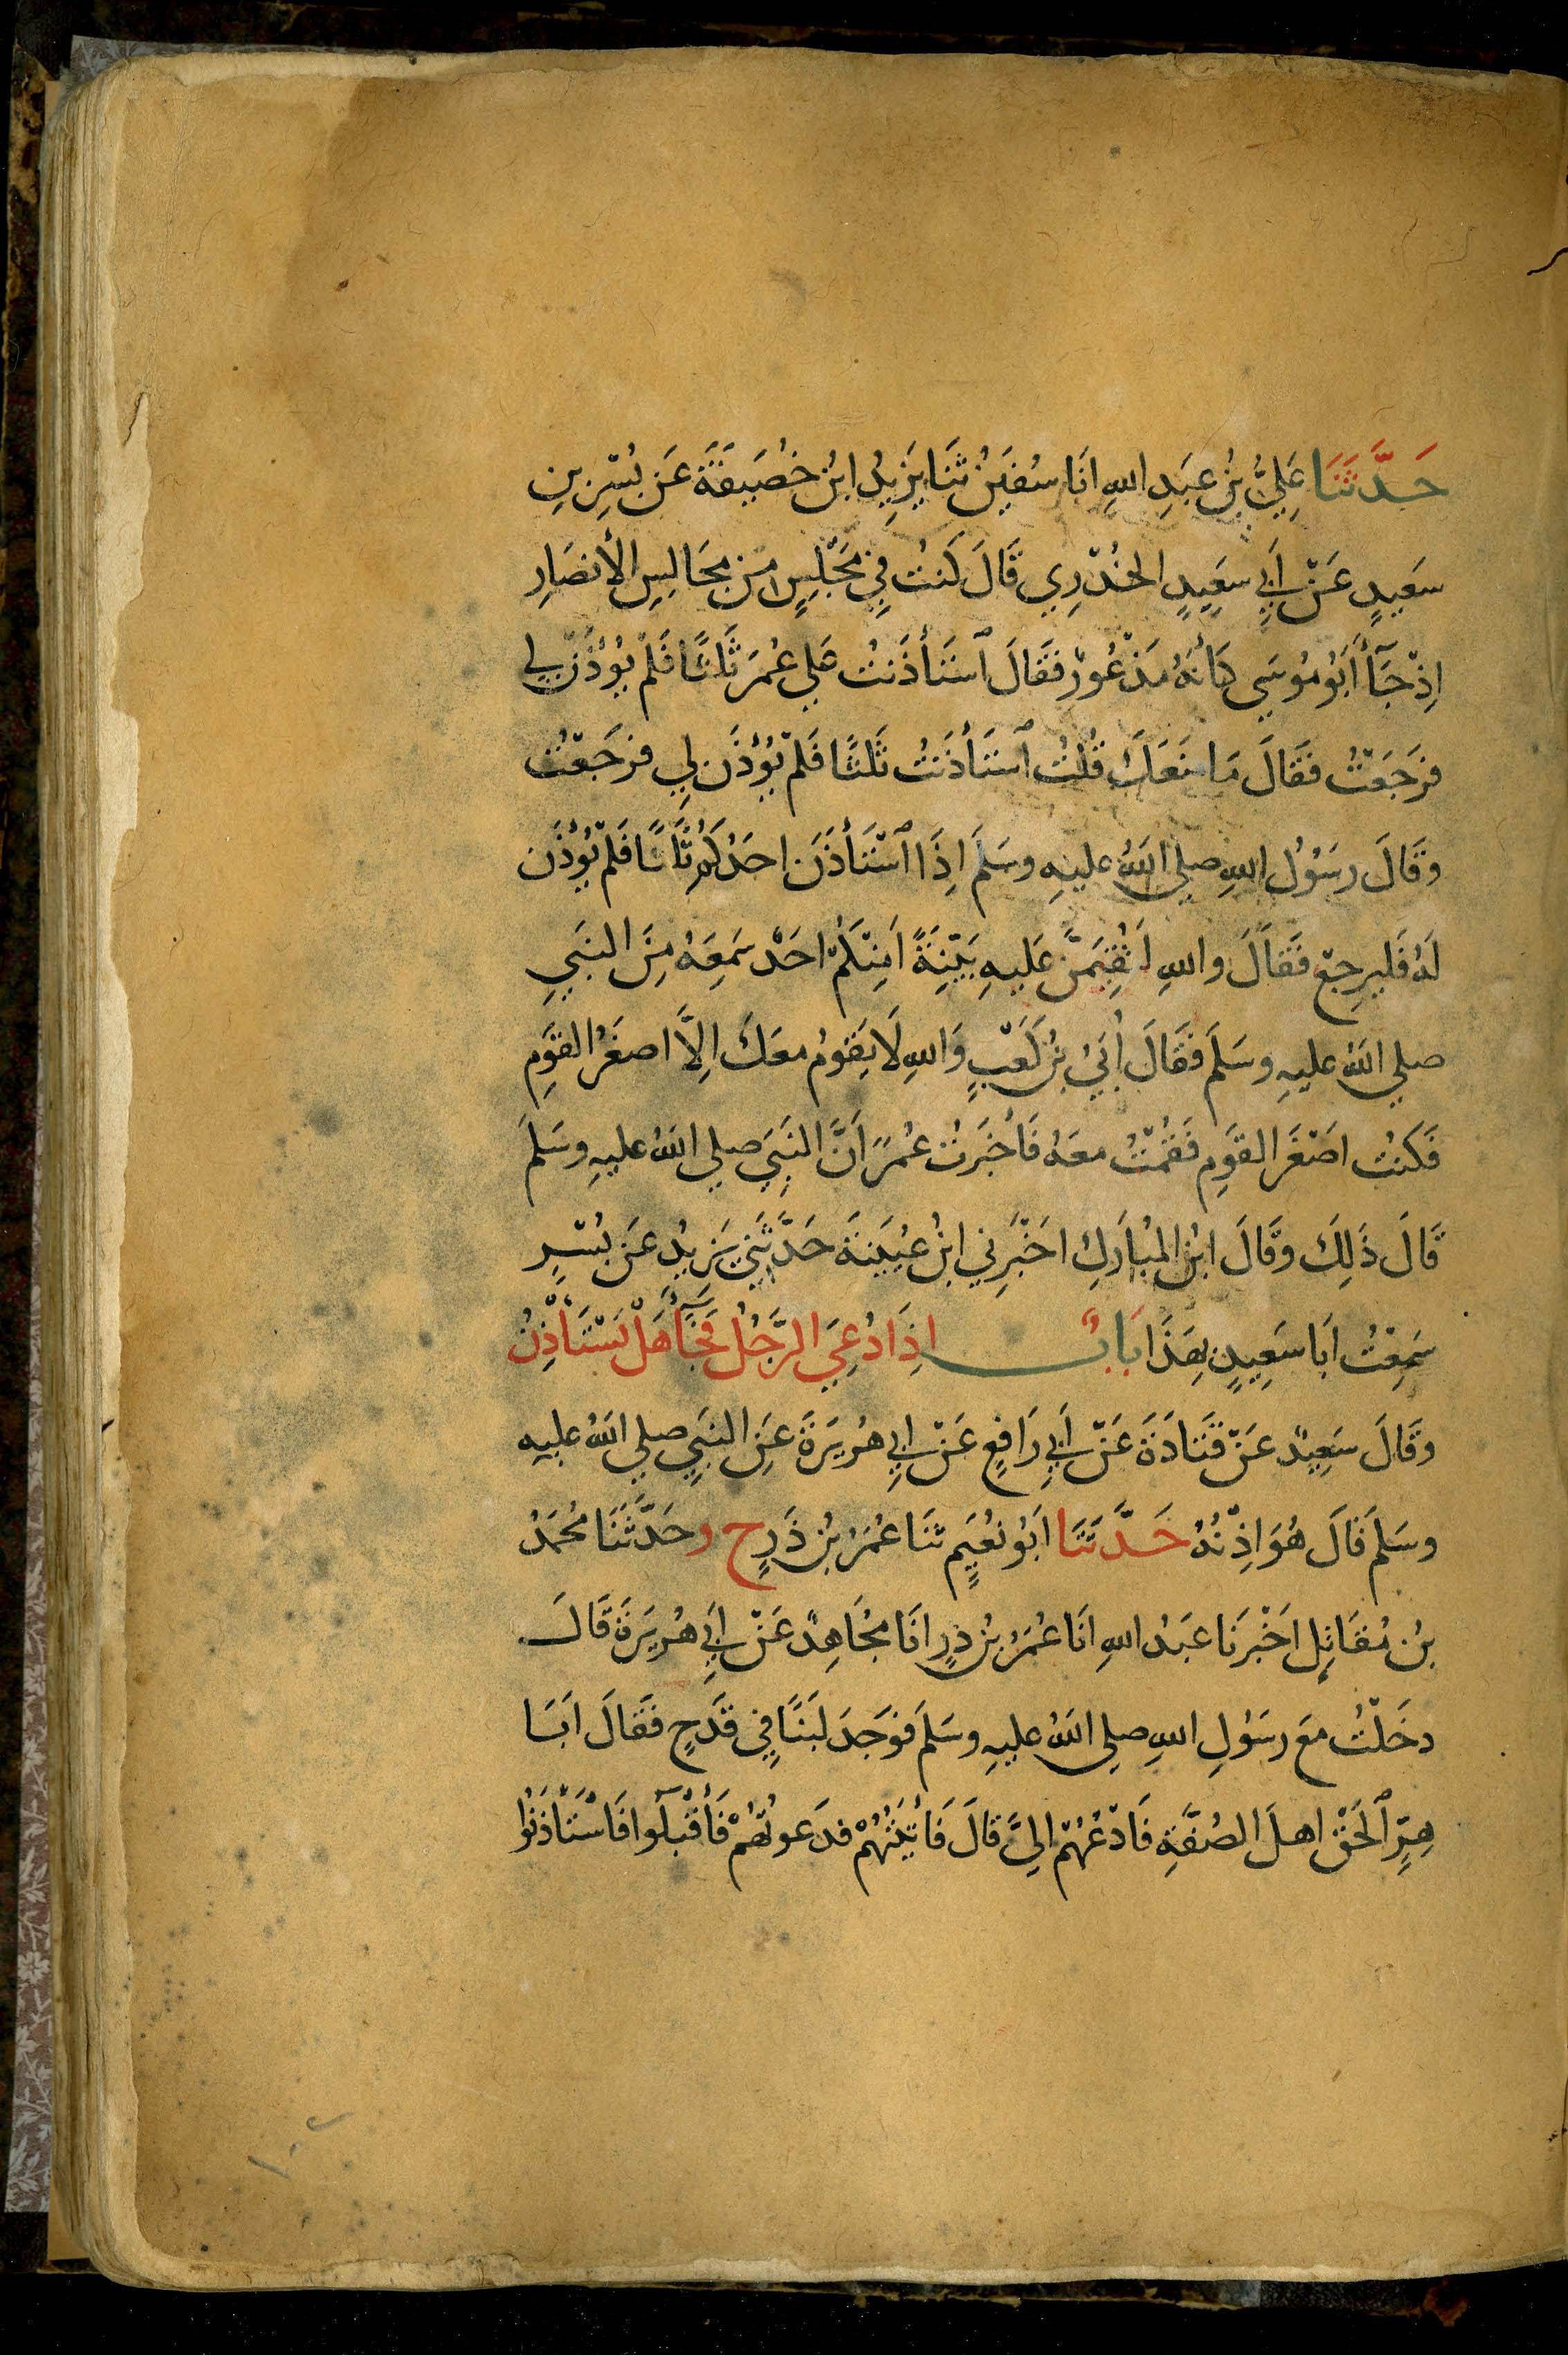 حَدَّثَنَا عَلِيُّ بْنُ عَبَدِ اللهِ انَا سُفيَنُ ثنَا يَزِيدُ ابنُ خُصَيفَةَ عَن بُسْرِ بنِ
سَعيدٍ عَنْ أَبِي سَعِيدٍ الخُدْرِي قَالَ كَنتُ فِي مَجْلِسٍ مِن مجَالِسِ الأنصَارِ
اِذْ جَآأَ أَبُو مُوسَي كَأنهُ مَذْعُورٌ فقَالَ ٱستَأذَنتُ عَلي عُمَرَ ثَلثًا فَلمْ يُؤْذَنْ لِي
فرَجَعْتُ فقَالَ مَا منَعَكَ قُلتُ ٱستَأذَنتُ ثَلثًا فَلمْ يُؤذَن لِي فرَجَعْتُ
وقَالَ رسَوُلُ اللهِ صلي اللهُ عليهِ وسَلمَ اِذَا ٱسْتَأذَنَ احَدُكُم ثَلَاثًا فَلمْ يُؤذَن
لهُ فَليرجِع فقَالَ واللهِ لَتُقِيمَنَّ عَليهِ بَيّنِةً اَمِنكُمْ احَدٌ سَمِعَهُ مِنَ النبَيِ
صلي اللهُ عليهِ وسَلمَ فقَالَ أُبَيُ بنُ كَعْبٍ وَاللهِ لَا يَقومُ معَكَ اِلاَّ اصغَرُ القَوَمِ
فَكنتُ اصْغَرَ القوَمِ فَقمْتُ معَهُ فَأخبَرتُ عُمَرَ اَنَّ النبَيَ صلي اللهُ عليهِ وسَلمَ
قَالَ ذَلِكَ وقَالَ ابنُ المُبَارَكِ اخَبْرَنِي ابنُ عُيَينَةَ حَدَّثَنِي يَزيدُ عَن بُسْرٍ
سَمِعْتُ اَبَا سَعِيدٍ بِهَذَا بَابٌ اِذَا دُعِيَ الرَّجُلُ فجَآءَ هَلْ يَسْتَأذِنُ
وقَالَ سَعِيدٌ عَنْ قَتَادَةَ عَنْ أَبِي رَافعٍ عَنْ ابِي هُرَيرَةَ عَنِ النبَيِ صلي اللهُ عليهِ
وسَلمَ قَالَ هُوَ اِذْنُهُ حَدَّثَنَا ابَوُ نعُيَمٍ ثنَا عُمَرُ بنُ ذَرٍ ح وحَدَّثَنَا مُحمَدُ
بنُ مُقَاتِلٍ اخَبْرَنَا عَبَدُ اللهِ انَا عُمَرُ بنُ ذرٍ انَا مُجَاهِدٌ عَنْ اَبِي هُرَيرَةَ قَالَ
دخَلْتُ معَ رسَوُلِ اللهِ صلي اللهُ عليهِ وسَلمَ فوَجَدَ لبَنًا فِي قدَحٍ فقَالَ ابَا
هِرٍّ ٱلحَقْ اهلَ الصُفَّةِ فَادْعُهُمْ اليَّ قَالَ فَأتيَتُهُمْ فدَعوتُهُمْ فَأقبَلوا فَاسْتَأذَنُوا